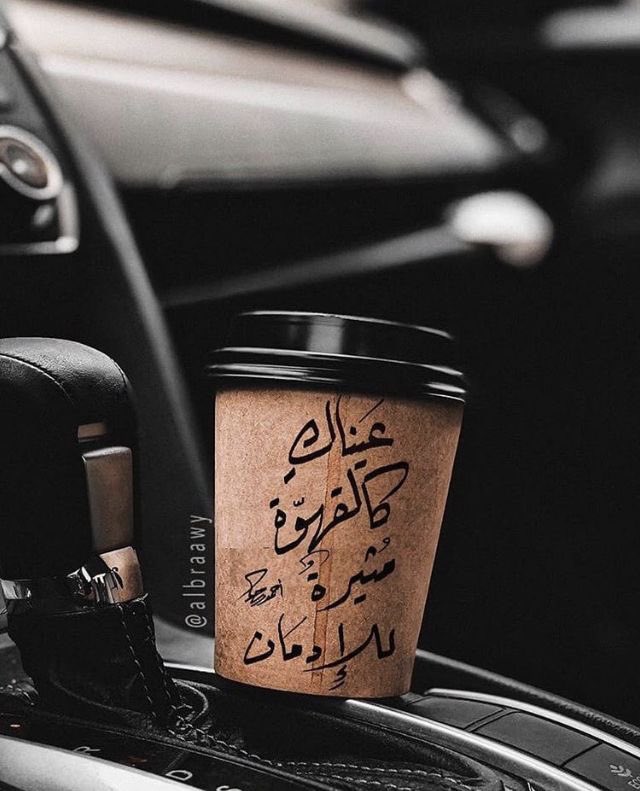 عَيناكِ
كالقهوّة
مُثيرةٌ
للإدمَان
@albraawy
R
D